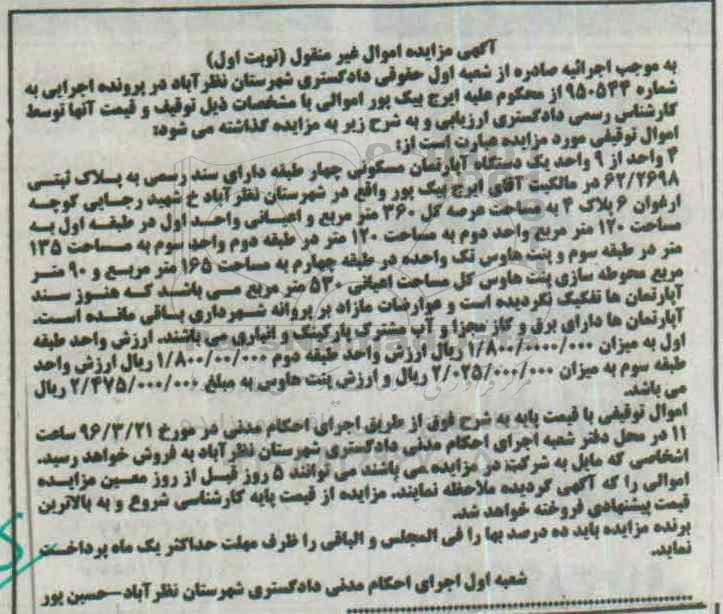 آگهی مزایده اموال غیر منقول (نوبت اول)
به موجب اجرائیه صادره از شعبه اول حقوقی دادگستری شهرستان نظرآباد در پرونده اجرایی به
شماره ۹۵۰۵۴۴ از محکوم علیه ایرج بیک پور اموالی با مشخصات ذیل توقیف و قیمت آنها توسط
کارشناس رسمی دادگستری ارزیابی و به شرح زیر به مزایده گذاشته می شود:
اموال توقیفی مورد مزایده عبارت است از:
۴ واحد از ۹ واحد یک دستگاه آپارتمان مسکونی چهار طبقه دارای سند رسمی به پلاک ثبتی
۶۲/۲۶۹۸ در مالکیت آقای ایرج بیک پور واقع در شهرستان نظرآباد خ شهید رجایی کوچه
ارغوان ۶ پلاک ۴ به مساحت عرصه کل ۳۶۰ متر مربع و اعیانی واحد اول در طبقه اول به
مساحت ۱۲۰ متر مربع واحد دوم به مساحت ۱۲۰ متر در طبقه دوم واحد سوم به مساحت ۱۳۵
متر در طبقه سوم و پنت هاوس تک واحده در طبقه چهارم به مساحت ۱۶۵ متر مربع و ۹۰ متر
مربع محوطه سازی پنت هاوس کل مساحت اعیانی ۵۳۰ متر مربع می باشد که هنوز سند
آپارتمان ها تفکیک نگردیده است و عوارضات مازاد بر پروانه شهرداری باقی مانده است.
آپارتمان ها دارای برق و گاز مجزا و آب مشترک پارکینگ و انباری می باشند. ارزش واحد طبقه
اول به میزان ۱/۸۰۰/۰۰۰/۰۰۰ ریال ارزش واحد طبقه دوم ۱/۸۰۰/۰۰/۰۰۰ ریال ارزش واحد
طبقه سوم به میزان ۲/۰۲۵/۰۰۰/۰۰۰ ریال و ارزش پنت هاوس به مبلغ ۲/۴۷۵/۰۰۰/۰۰۰ ریال
می باشد.
اموال توقیفی با قیمت پایه به شرح فوق از طریق اجرای احکام مدنی در مورخ ۹۶/۳/۲۱ ساعت
۱۱ در محل دفتر شعبه اجرای احکام مدنی دادگستری شهرستان نظرآباد به فروش خواهد رسید.
اشخاصی که مایل به شرکت در مزایده می باشند می توانند ۵ روز قبل از روز معین مزایده
اموالی را که آگهی گردیده ملاحظه نمایند. مزایده از قیمت پایه کارشناسی شروع و به بالاترین
قیمت پیشنهادی فروخته خواهد شد.
برنده مزایده باید ده درصد بها را فی المجلس و الباقی را ظرف مهلت حداکثر یک ماه پرداخت
نماید.
شعبه اول اجرای احکام مدنی دادگستری شهرستان نظرآباد–حسین پور